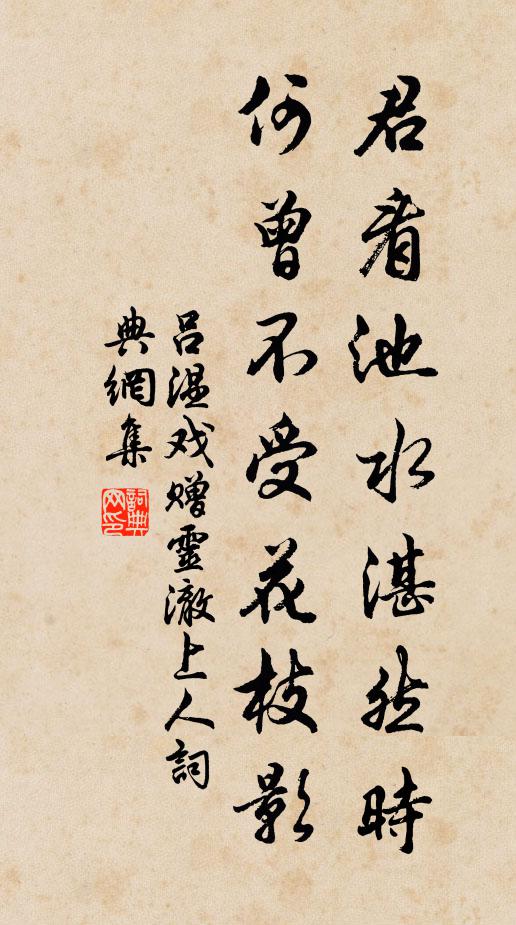 君看池水湛然時
何曾不受花枝影
呂温戏赠靈澈上人詞
典網集
詞典網印